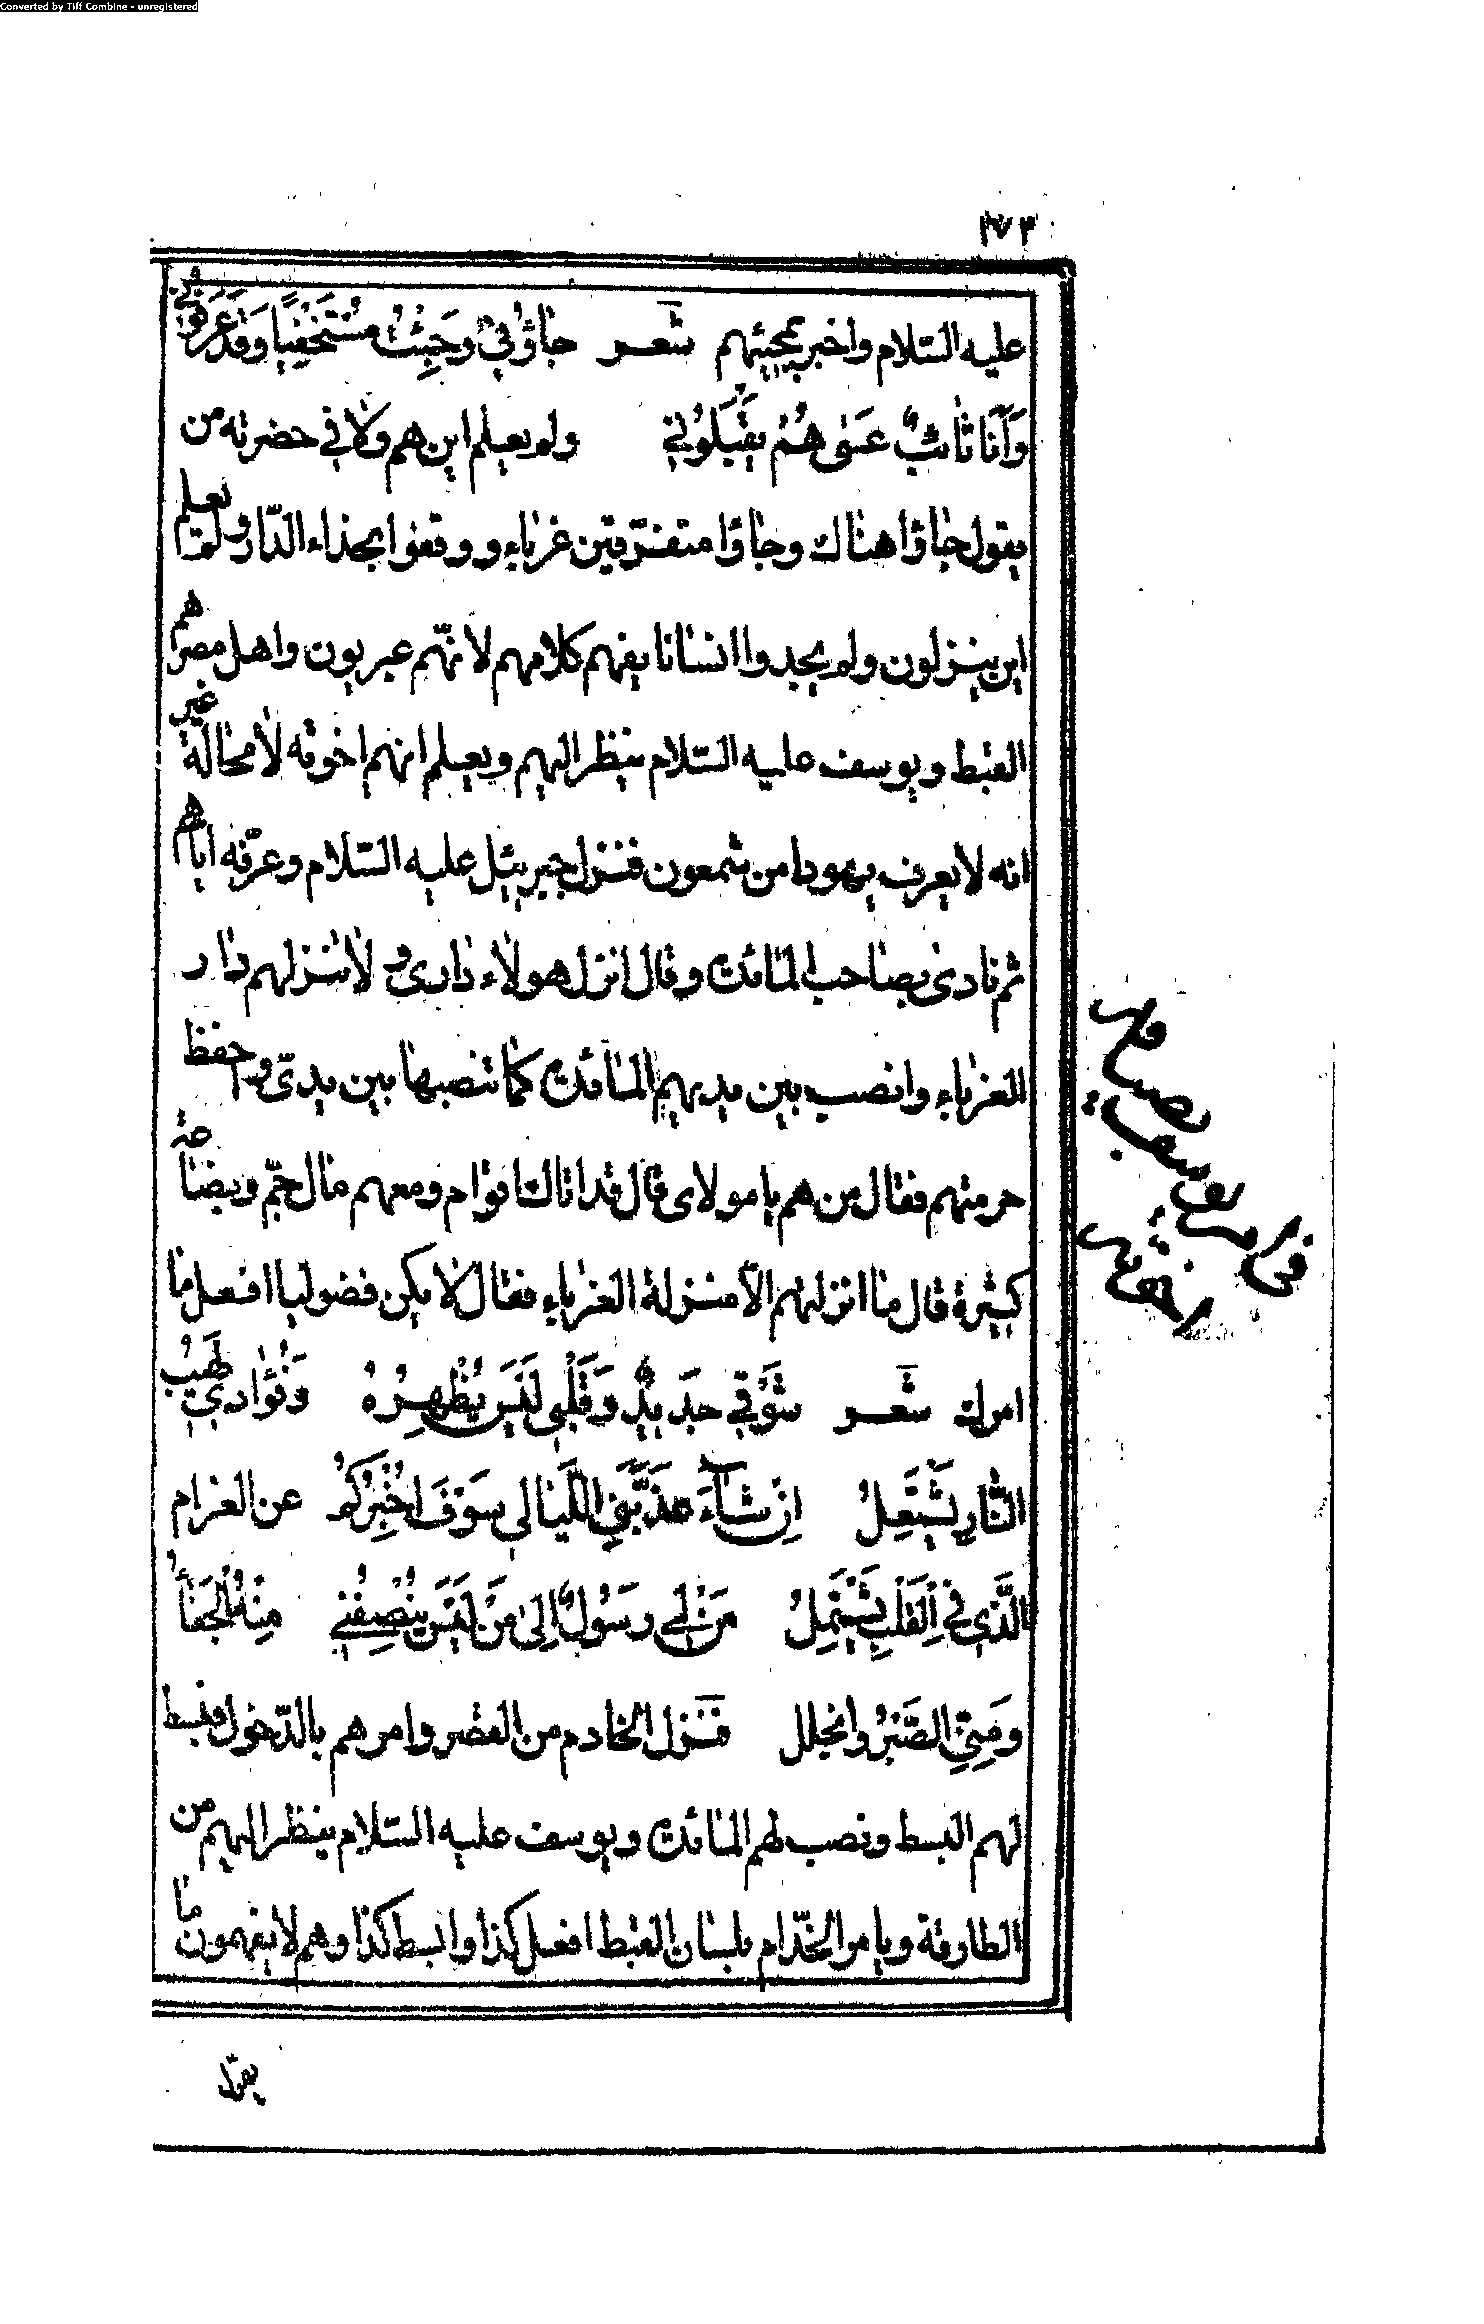 Converted by Tiff Combine - unregistered
٢٧٣
عليه السّلام واخبر بمجيئهم شعر جاؤني وجئت مستخفيًا وقد عرفوني
وَاَنَا تَائبٌ عَسٰى هُمْ يقبَلوُني ولم يعلم اين هم ولا في حضرته من
يقول جاؤا هناك وجاؤا متفرّقين غرباء ووقفوا بحذاء الدّار ولم يعلم
اين ينزلون ولم يجدوا انسانا يفهم كلامهم لانّهم عبريون واهل مصر هم
القبط ويوسف عليه السّلام ينظر اليهم ويعلم انهم اخوته لا محالة غير
انه لا يعرف يهودا من شمعون فنزل جبريئل عليه السّلام وعرّفه اياهم
ثم نادى بصاحب المائدة وقال انزل هولاء داري ولا تنزلهم دار
الغرباء وانصب بين يديهم المائدة كما تنصبها بين يديّ واحفظ
حرمتهم فقال من هم يا مولاى قال قد اتاك اقوام ومعهم مال جمّ وبضاعة
كثيرة قال ما انزلتهم الاّ منزلة الغرباء فقال لا يكن فضوليا افعل ما
امرك شعر شَوْقي جَديدٌ وَقَلْبي لَيْسَ يُظْهِرُهُ وَفُؤادي لَهيبُ
النّارِ يَشْتَعِلُ اِنْ شآءَ عَذَّبَنِي اللَّيالي سَوْفَ اُخْبِرُكُمْ عن الغرام
الَّذي في الْقَلْبِ يَشْتَمِلُ مَنْ لي رَسُولٌ اِلىٰ مَنْ لَيْسَ يُنْصِفُني مِنْهُ الْجَفَاءُ
وَمِنّي الصَّبْرُ وَالْخجلل فنزل الخادم من القصر وامرهم بالدّخول وبسط
لهم البسط ونصب لهم المائدة ويوسف عليه السّلام ينظر اليهم من
الطارقة ويامر الخدّام بلسان القبط افعل كذا وابسط كذا وهم لا يفهمون ما
يقول